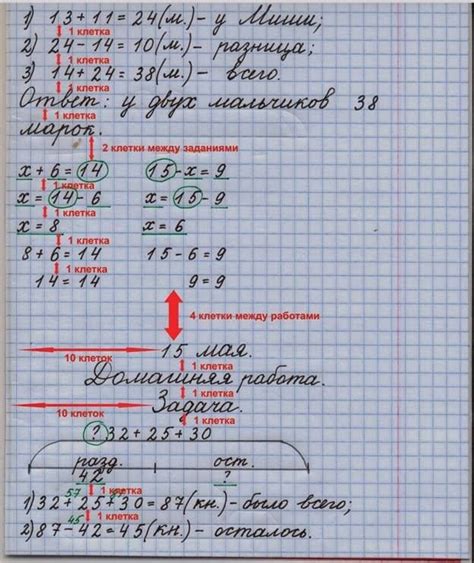 1) 13 + 11 = 24 (м.) – у Миши;
1 клетка
2) 24 – 14 = 10 (м.) – разница;
1 клетка
3) 14 + 24 = 38 (м.) – всего.
1 клетка
Ответ: у двух мальчиков 38
1 клетка
марок.
2 клетки между заданиями
x + 6 = 14 15 - x = 9
1 клетка
x = 14 - 6 x = 15 - 9
1 клетка
x = 8 x = 6
1 клетка
8 + 6 = 14 15 - 6 = 9
1 клетка
14 = 14 9 = 9
4 клетки между работами
15 мая.
10 клеток 1 клетка
Домашняя работа.
1 клетка
Задача.
10 клеток 1 клетка
? 32 + 25 + 30
разд. ост.
42 ?
57 1 клетка
1) 32 + 25 + 30 = 87 (кн.) – было всего;
45 1 клетка
2) 87 – 42 = 45 (кн.) – осталось.